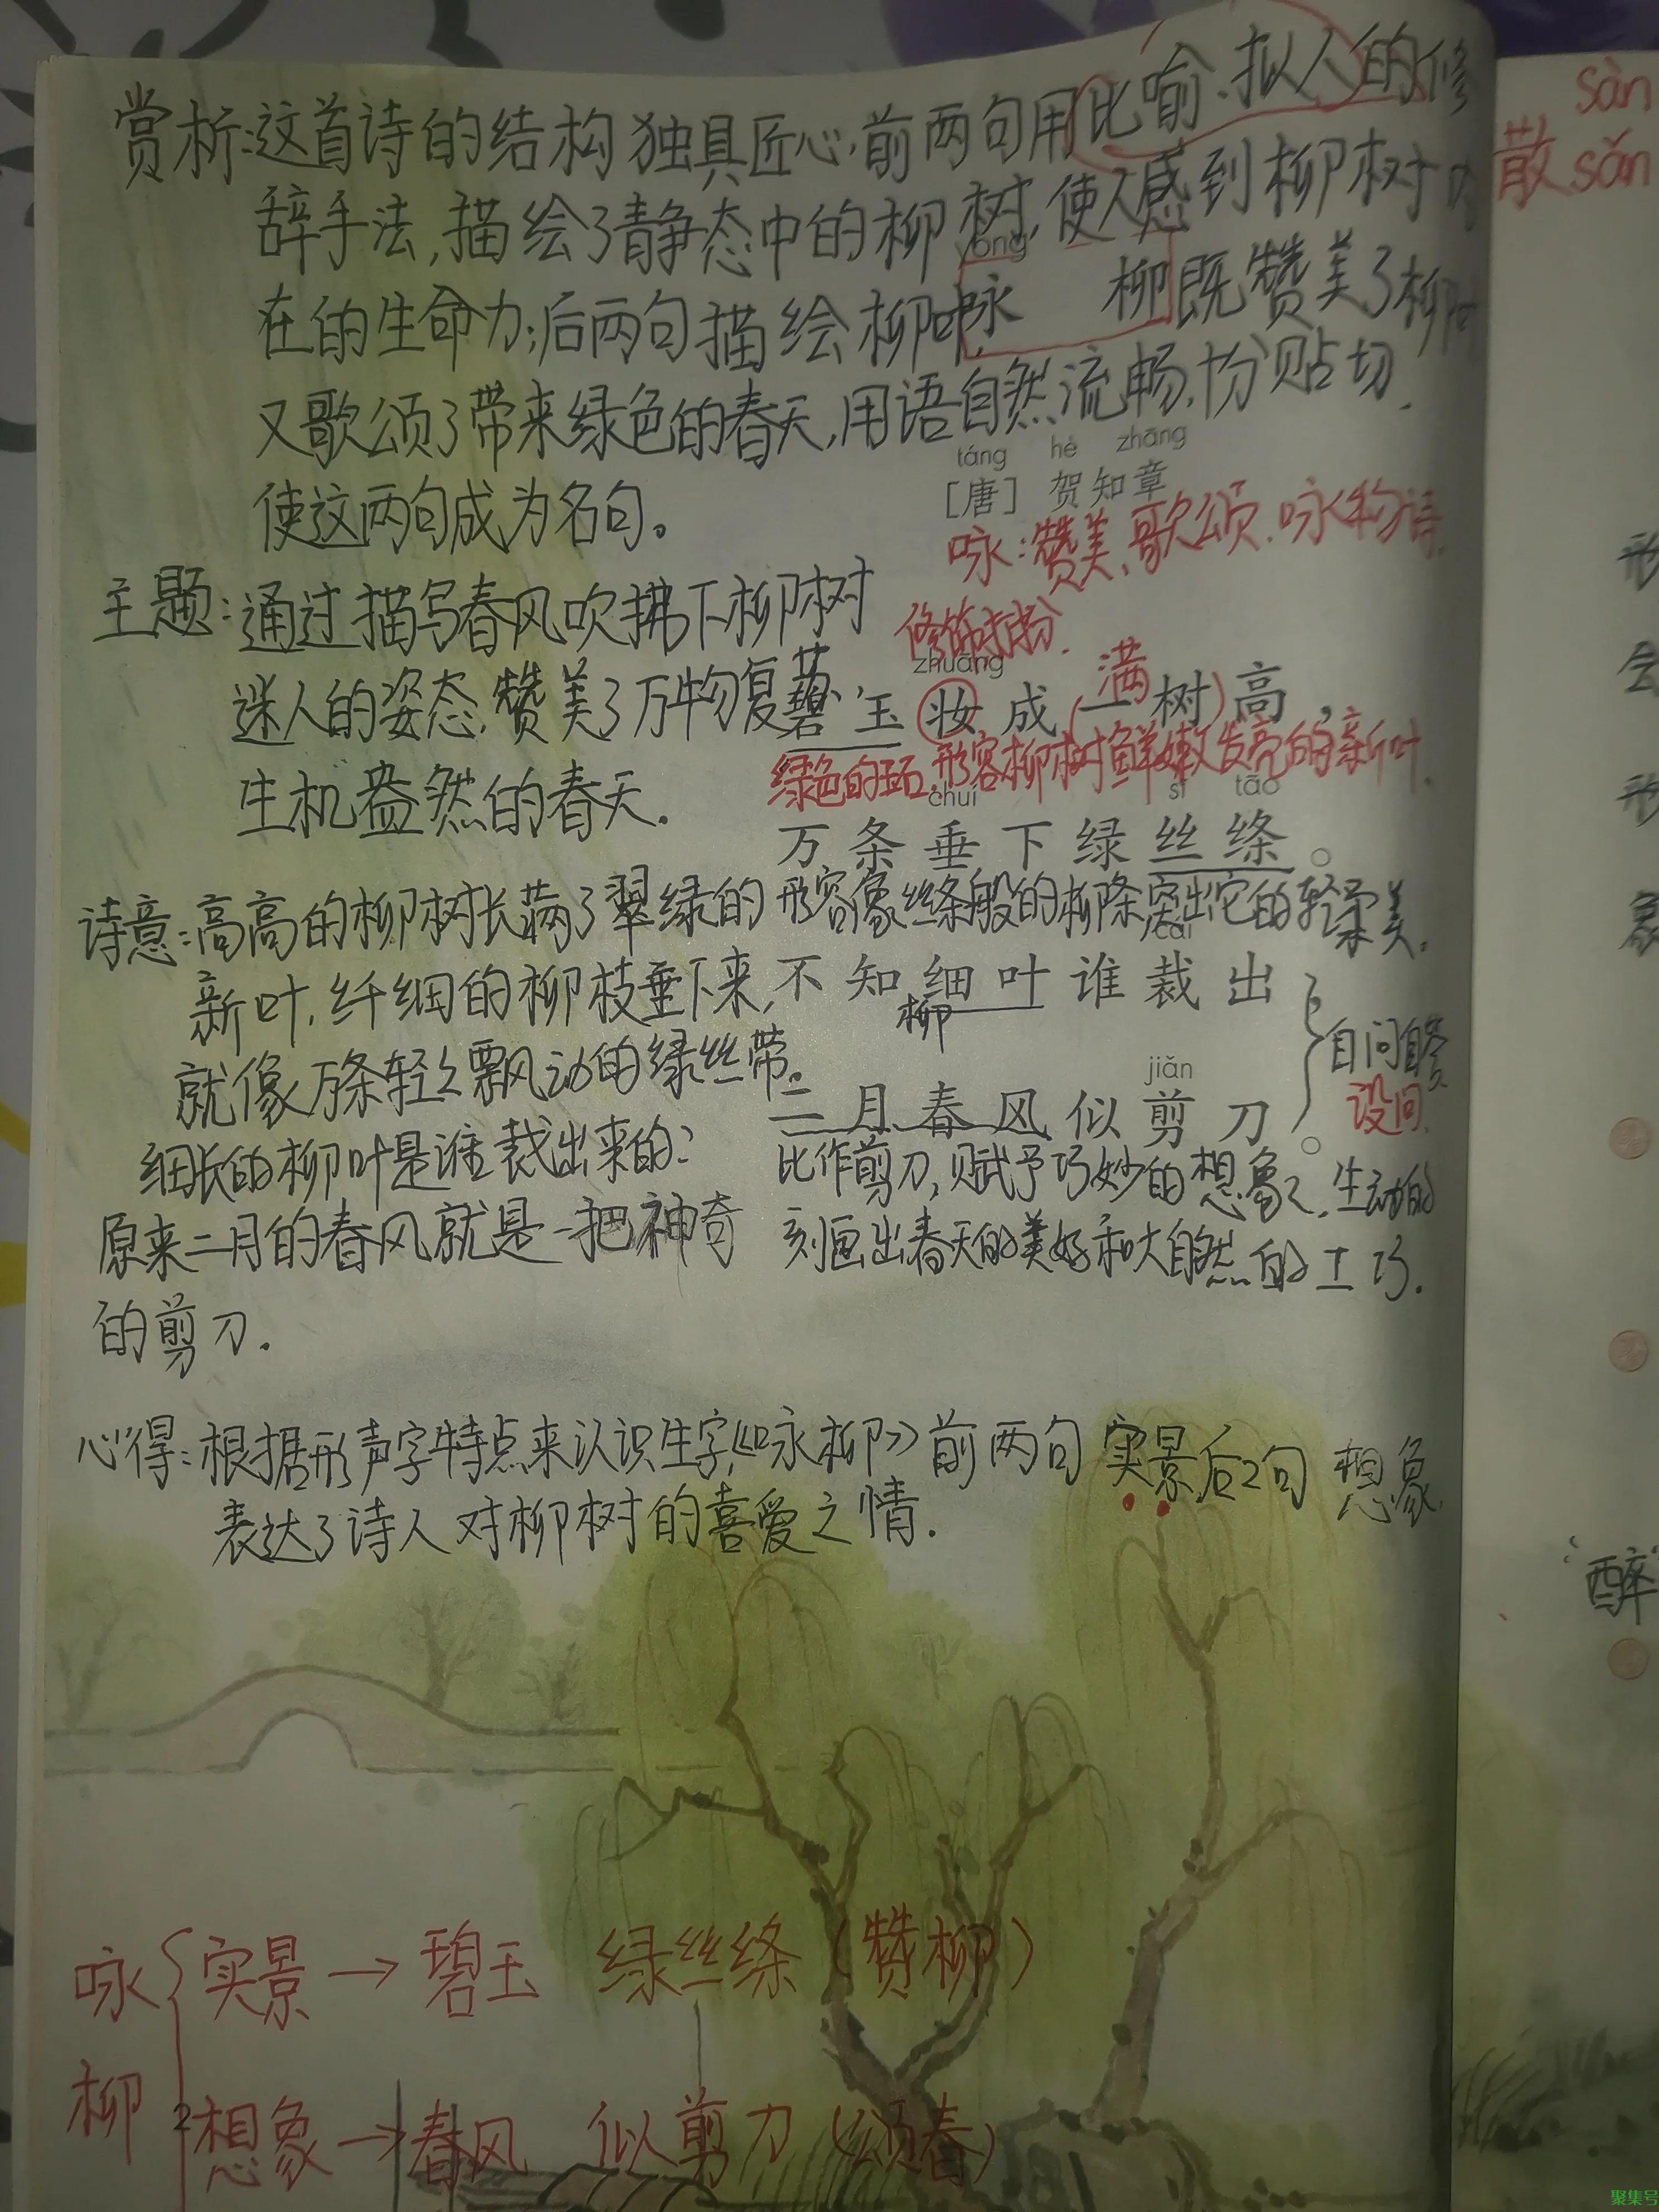 赏析:这首诗的结构独具匠心,前两句用比喻、拟人的修
辞手法,描绘了静态中的柳树,使人感到柳树内
在的生命力;后两句描绘柳叶,既赞美了柳叶
又歌颂了带来绿色的春天,用语自然流畅,恰贴切.
使这两句成为名句。
yǒng
咏 柳
táng hè zhāng
[唐] 贺知章
咏:赞美、歌颂.咏物诗.
主题:通过描写春风吹拂下柳树
迷人的姿态,赞美了万物复苏,
生机盎然的春天.
修饰打扮.
zhuāng
满
碧玉妆成一树高,
绿色的玉石,形容柳树鲜嫩发亮的新叶.
chuí sī tāo
万条垂下绿丝绦。
形容像丝绦般的柳条突出它的轻柔美.
cái
不知细叶谁裁出
柳
jiǎn
二月春风似剪刀。
自问自答
设问.
比作剪刀,赋予巧妙的想象,生动的
刻画出春天的美好和大自然的工巧.
诗意:高高的柳树长满了翠绿的
新叶,纤细的柳枝垂下来,
就像万条轻轻飘动的绿丝带。
细长的柳叶是谁裁出来的?
原来二月的春风就是一把神奇
的剪刀.
心得:根据形声字特点来认识生字,《咏柳》前两句实景后2句想象
表达了诗人对柳树的喜爱之情.
咏柳
实景→碧玉 绿丝绦(赞柳)
想象→春风 似剪刀(颂春)
sàn
散 sǎn
形
会
形
象
“醉”
聚集号